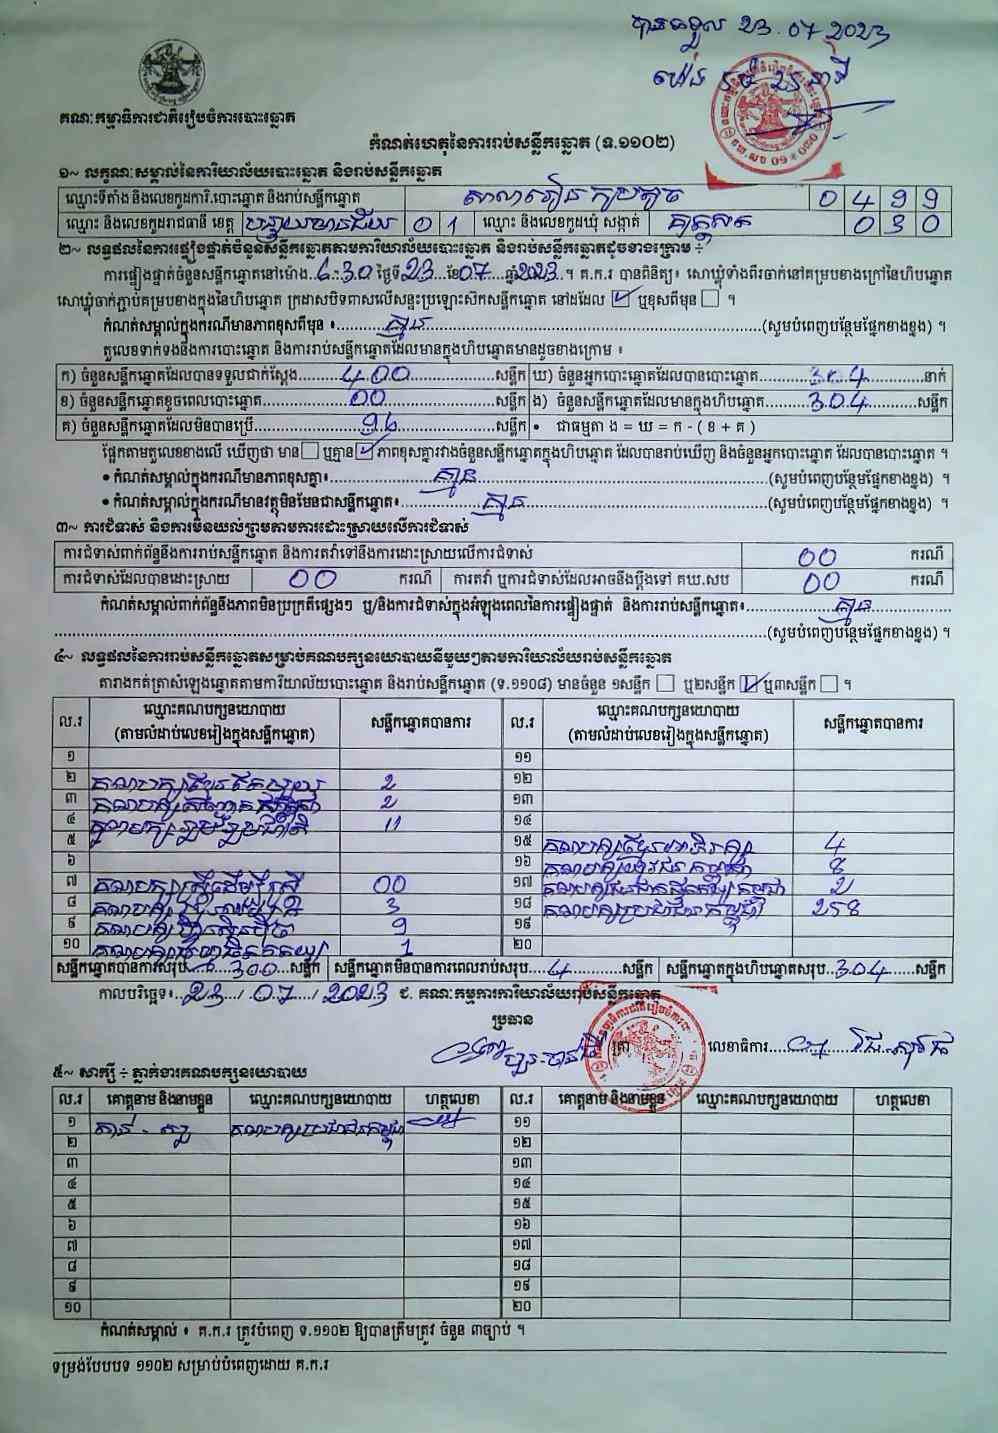 បានទទួល 23.07.2023
ម៉ោង
គណៈកម្មាធិការជាតិរៀបចំការបោះឆ្នោត
កំណត់ហេតុនៃការរាប់សន្លឹកឆ្នោត (ទ.១១០២)
១~ លក្ខណៈសម្គាល់នៃការិយាល័យបោះឆ្នោត និងរាប់សន្លឹកឆ្នោត
ឈ្មោះទីតាំង និងលេខកូដការិ.បោះឆ្នោត និងរាប់សន្លឹកឆ្នោត សាលារៀន 0499
ឈ្មោះ និងលេខកូដរាជធានី ខេត្ត បន្ទាយមានជ័យ 01 ឈ្មោះ និងលេខកូដឃុំ សង្កាត់ 030
២~ លទ្ធផលនៃការផ្ទៀងផ្ទាត់ចំនួនសន្លឹកឆ្នោតតាមការិយាល័យបោះឆ្នោត និងរាប់សន្លឹកឆ្នោតដូចខាងក្រោម ÷
ការផ្ទៀងផ្ទាត់ចំនួនសន្លឹកឆ្នោតនៅម៉ោង 6:30 ថ្ងៃទី 23 ខែ 07 ឆ្នាំ 2023 ។ គ.ក.រ បានពិនិត្យ៖ សោឃ្លុំទាំងពីរចាក់នៅគម្របខាងក្រៅនៃហិបឆ្នោត
សោឃ្លុំចាក់ភ្ជាប់គម្របខាងក្នុងនៃហិបឆ្នោត ក្រដាសបិទពាសលើសន្ទះប្រឡោះស៊កសន្លឹកឆ្នោត នៅដដែល ☑ ឬខុសពីមុន ☐ ។
កំណត់សម្គាល់ក្នុងករណីមានភាពខុសពីមុន ៖ គ្មាន (សូមបំពេញបន្ថែមផ្នែកខាងខ្នង) ។
តួលេខទាក់ទងនឹងការបោះឆ្នោត និងការរាប់សន្លឹកឆ្នោតដែលមានក្នុងហិបឆ្នោតមានដូចខាងក្រោម ៖
ក) ចំនួនសន្លឹកឆ្នោតដែលបានទទួលជាក់ស្តែង 400 សន្លឹក ឃ) ចំនួនអ្នកបោះឆ្នោតដែលបានបោះឆ្នោត 304 នាក់
ខ) ចំនួនសន្លឹកឆ្នោតខូចពេលបោះឆ្នោត 00 សន្លឹក ង) ចំនួនសន្លឹកឆ្នោតដែលមានក្នុងហិបឆ្នោត 304 សន្លឹក
គ) ចំនួនសន្លឹកឆ្នោតដែលមិនបានប្រើ 96 សន្លឹក • ជាធម្មតា ង = ឃ = ក - ( ខ + គ )
ផ្អែកតាមតួលេខខាងលើ ឃើញថា មាន ☐ ឬគ្មាន ☑ ភាពខុសគ្នារវាងចំនួនសន្លឹកឆ្នោតក្នុងហិបឆ្នោត ដែលបានរាប់ឃើញ និងចំនួនអ្នកបោះឆ្នោត ដែលបានបោះឆ្នោត ។
• កំណត់សម្គាល់ក្នុងករណីមានភាពខុសគ្នា៖ គ្មាន (សូមបំពេញបន្ថែមផ្នែកខាងខ្នង) ។
• កំណត់សម្គាល់ក្នុងករណីមានវត្ថុមិនមែនជាសន្លឹកឆ្នោត៖ គ្មាន (សូមបំពេញបន្ថែមផ្នែកខាងខ្នង) ។
៣~ ការជំទាស់ និងការមិនយល់ព្រមតាមការដោះស្រាយលើការជំទាស់
ការជំទាស់ពាក់ព័ន្ធនឹងការរាប់សន្លឹកឆ្នោត និងការតវ៉ាទៅនឹងការដោះស្រាយលើការជំទាស់ 00 ករណី
ការជំទាស់ដែលបានដោះស្រាយ 00 ករណី ការតវ៉ា ឬការជំទាស់ដែលអាចនឹងប្តឹងទៅ គឃ.សប 00 ករណី
កំណត់សម្គាល់ពាក់ព័ន្ធនឹងភាពមិនប្រក្រតីផ្សេងៗ ឬ/និងការជំទាស់ក្នុងអំឡុងពេលនៃការផ្ទៀងផ្ទាត់ និងការរាប់សន្លឹកឆ្នោត៖ គ្មាន
(សូមបំពេញបន្ថែមផ្នែកខាងខ្នង) ។
៤~ លទ្ធផលនៃការរាប់សន្លឹកឆ្នោតសម្រាប់គណបក្សនយោបាយនីមួយៗតាមការិយាល័យរាប់សន្លឹកឆ្នោត
តារាងកត់ត្រាសំឡេងឆ្នោតតាមការិយាល័យបោះឆ្នោត និងរាប់សន្លឹកឆ្នោត (ទ.១១០៨) មានចំនួន ១សន្លឹក ☐ ឬ២សន្លឹក ☑ ឬ៣សន្លឹក ☐ ។
ល.រ ឈ្មោះគណបក្សនយោបាយ (តាមលំដាប់លេខរៀងក្នុងសន្លឹកឆ្នោត) សន្លឹកឆ្នោតបានការ ល.រ ឈ្មោះគណបក្សនយោបាយ (តាមលំដាប់លេខរៀងក្នុងសន្លឹកឆ្នោត) សន្លឹកឆ្នោតបានការ
១ ១១
២ គណបក្ស 2 ១២
៣ គណបក្ស 2 ១៣
៤ គណបក្ស 11 ១៤
៥ ១៥ គណបក្ស 4
៦ ១៦ គណបក្ស 8
៧ គណបក្សស្ត្រីដើម្បីស្ត្រី 00 ១៧ គណបក្ស 2
៨ គណបក្ស 3 ១៨ គណបក្សប្រជាជនកម្ពុជា 258
៩ គណបក្ស 9 ១៩
១០ គណបក្ស 1 ២០
សន្លឹកឆ្នោតបានការសរុប 300 សន្លឹក សន្លឹកឆ្នោតមិនបានការពេលរាប់សរុប 4 សន្លឹក សន្លឹកឆ្នោតក្នុងហិបឆ្នោតសរុប 304 សន្លឹក
កាលបរិច្ឆេទ៖ 23 / 07 / 2023 ជ. គណៈកម្មការការិយាល័យរាប់សន្លឹកឆ្នោត
ប្រធាន
ត្រា លេខាធិការ
៥~ សាក្សី ÷ ភ្នាក់ងារគណបក្សនយោបាយ
ល.រ គោត្តនាម និងនាមខ្លួន ឈ្មោះគណបក្សនយោបាយ ហត្ថលេខា ល.រ គោត្តនាម និងនាមខ្លួន ឈ្មោះគណបក្សនយោបាយ ហត្ថលេខា
១ គណបក្សប្រជាជនកម្ពុជា ១១
២ ១២
៣ ១៣
៤ ១៤
៥ ១៥
៦ ១៦
៧ ១៧
៨ ១៨
៩ ១៩
១០ ២០
កំណត់សម្គាល់ ៖ គ.ក.រ ត្រូវបំពេញ ទ.១១០២ ឱ្យបានត្រឹមត្រូវ ចំនួន ៣ច្បាប់ ។
ទម្រង់បែបបទ ១១០២ សម្រាប់បំពេញដោយ គ.ក.រ